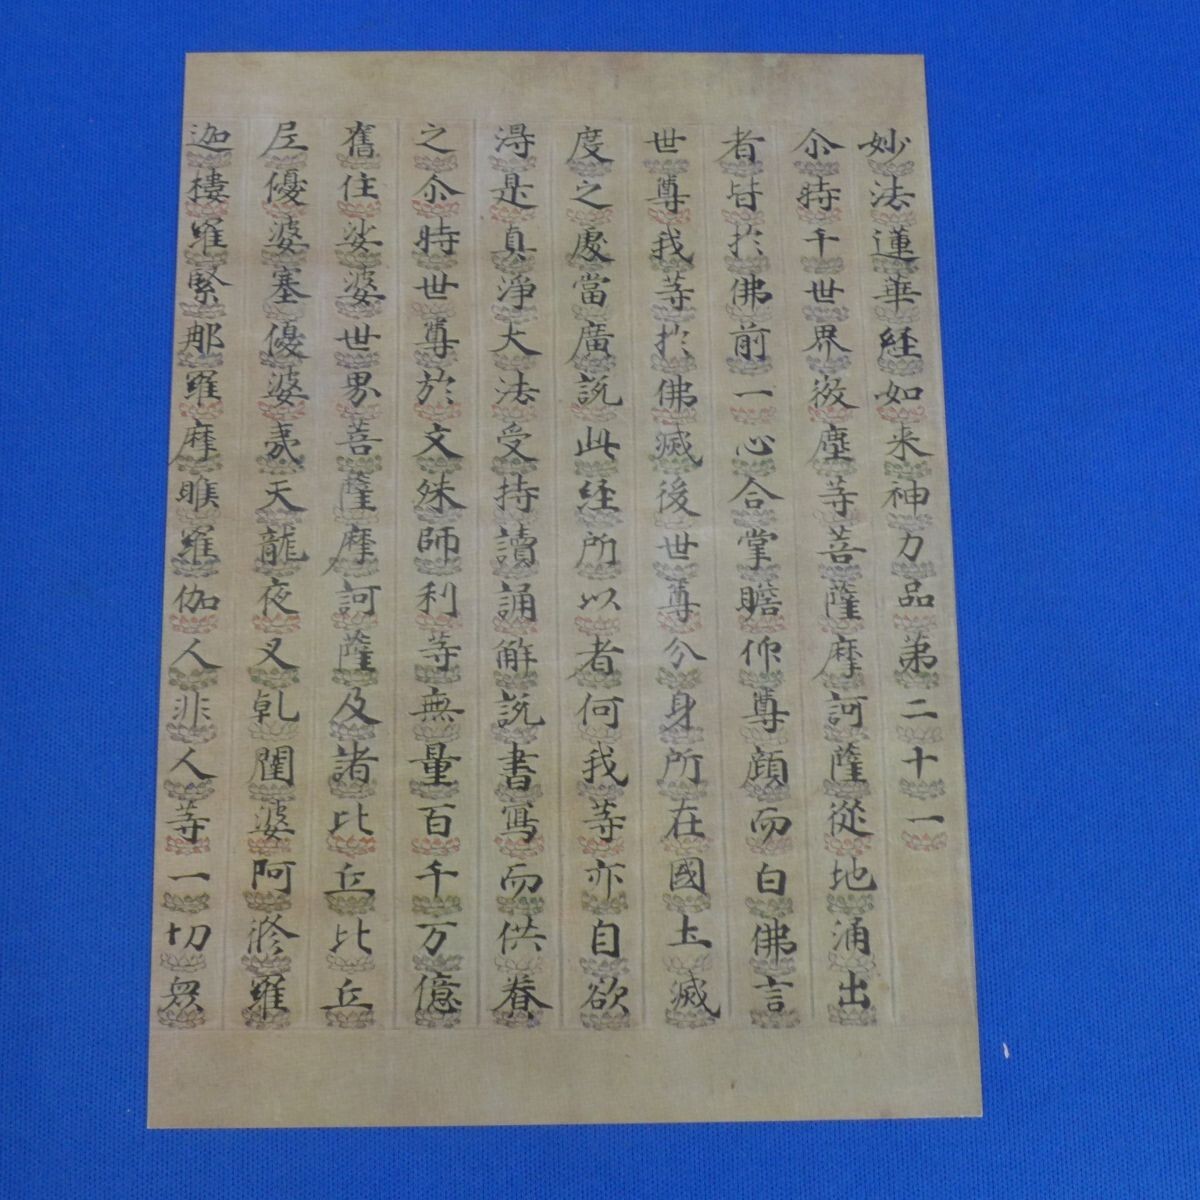 妙法蓮華経如来神力品苐二十一
尒時千世界微塵等菩薩摩訶薩從地涌出
者皆於佛前一心合掌瞻仰尊顔而白佛言
世尊我等於佛滅後世尊分身所在國土滅
度之處當廣説此経所以者何我等亦自欲
得是真淨大法受持讀誦解説書寫而供養
之尒時世尊於文殊師利等無量百千万億
舊住娑婆世界菩薩摩訶薩及諸比丘比丘
尼優婆塞優婆夷天龍夜叉乹闥婆阿脩羅
迦樓羅緊那羅摩睺羅伽人非人等一切衆